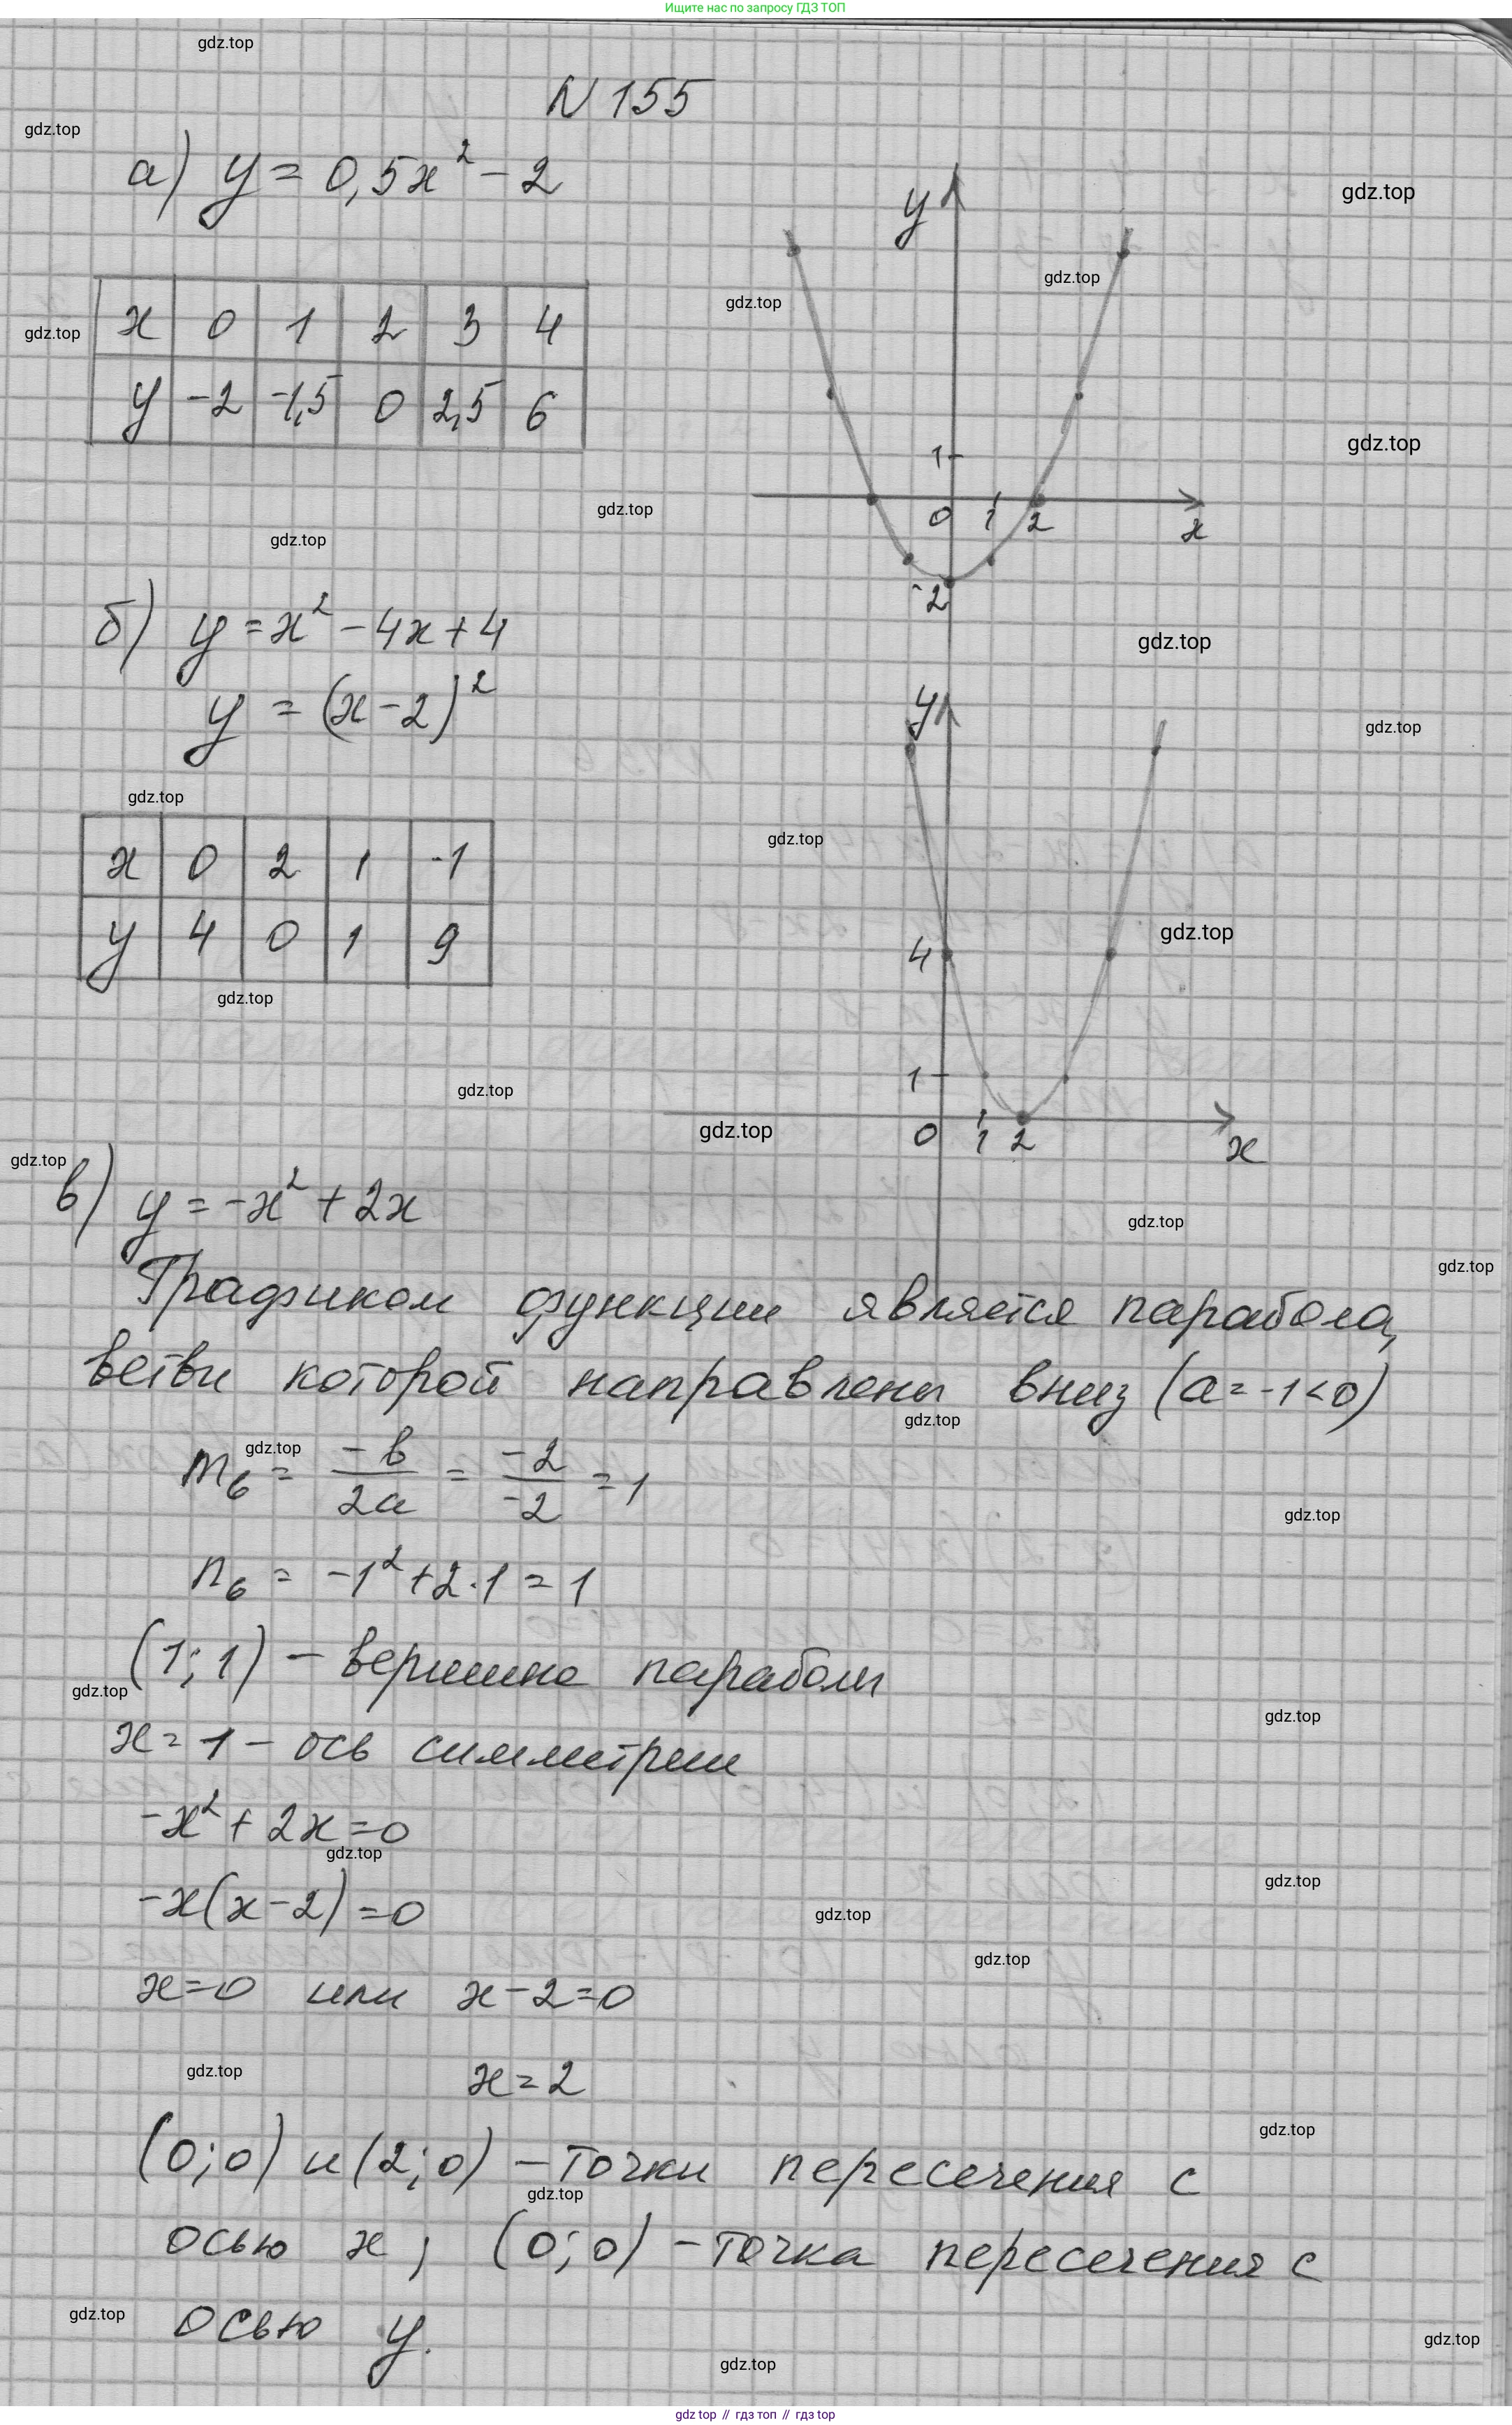 Ищите нас по запросу ГДЗ ТОП
gdz.top
N 155
gdz.top
а) y = 0,5x² - 2
gdz.top
y
gdz.top
gdz.top
gdz.top
x 0 1 2 3 4
y -2 -1,5 0 2,5 6
gdz.top
1
0 1 2 x
-2
gdz.top
gdz.top
б) y = x² - 4x + 4
gdz.top
y = (x - 2)²
y
gdz.top
gdz.top
gdz.top
x 0 2 1 -1
y 4 0 1 9
gdz.top
4
gdz.top
gdz.top
1
gdz.top
0 1 2 x
gdz.top
в) y = -x² + 2x
gdz.top
gdz.top
Графиком функции является парабола,
ветви которой направлены вниз (a = -1 < 0)
gdz.top
gdz.top
m₆ = -b/2a = -2/-2 = 1
gdz.top
n₆ = -1² + 2·1 = 1
(1; 1) - вершина параболы
gdz.top
gdz.top
x = 1 - ось симметрии
-x² + 2x = 0
gdz.top
gdz.top
-x(x - 2) = 0
gdz.top
gdz.top
x = 0 или x - 2 = 0
gdz.top
x = 2
gdz.top
(0; 0) и (2; 0) - точки пересечения с
gdz.top
осью x; (0; 0) - точка пересечения с
gdz.top
осью y.
gdz.top
gdz.top
gdz top // гдз топ // гдз top